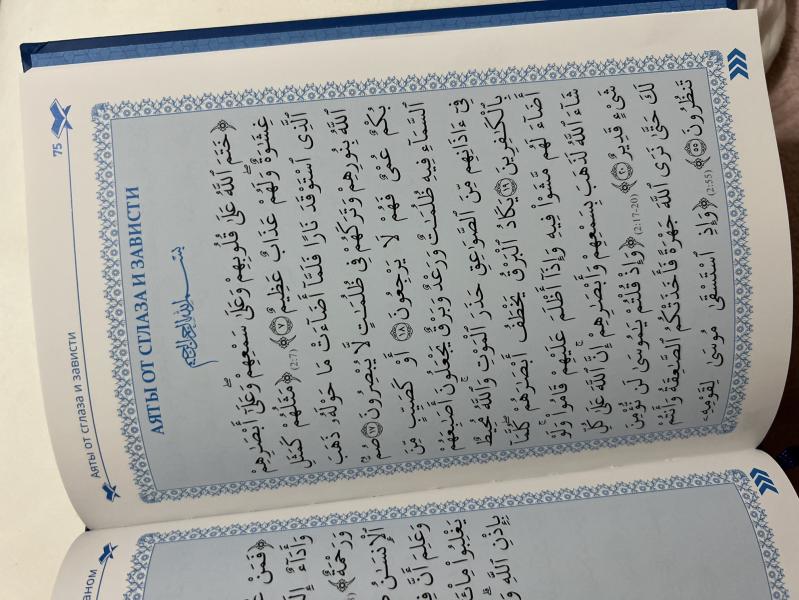 Аяты от сглаза и зависти
75
АЯТЫ ОТ СГЛАЗА И ЗАВИСТИ
بسم الله الرحمن الرحيم
﴿خَتَمَ ٱللَّهُ عَلَىٰ قُلُوبِهِمْ وَعَلَىٰ سَمْعِهِمْ ۖ وَعَلَىٰٓ أَبْصَٰرِهِمْ
غِشَٰوَةٌ ۖ وَلَهُمْ عَذَابٌ عَظِيمٌ ٧﴾ (2:7) ﴿مَثَلُهُمْ كَمَثَلِ
ٱلَّذِى ٱسْتَوْقَدَ نَارًا فَلَمَّآ أَضَآءَتْ مَا حَوْلَهُۥ ذَهَبَ
ٱللَّهُ بِنُورِهِمْ وَتَرَكَهُمْ فِى ظُلُمَٰتٍ لَّا يُبْصِرُونَ ١٧ صُمٌّۢ
بُكْمٌ عُمْىٌ فَهُمْ لَا يَرْجِعُونَ ١٨ أَوْ كَصَيِّبٍ مِّنَ
ٱلسَّمَآءِ فِيهِ ظُلُمَٰتٌ وَرَعْدٌ وَبَرْقٌ يَجْعَلُونَ أَصَٰبِعَهُمْ
فِىٓ ءَاذَانِهِم مِّنَ ٱلصَّوَٰعِقِ حَذَرَ ٱلْمَوْتِ ۚ وَٱللَّهُ مُحِيطٌۢ
بِٱلْكَٰفِرِينَ ١٩ يَكَادُ ٱلْبَرْقُ يَخْطَفُ أَبْصَٰرَهُمْ ۖ كُلَّمَآ
أَضَآءَ لَهُم مَّشَوْا۟ فِيهِ وَإِذَآ أَظْلَمَ عَلَيْهِمْ قَامُوا۟ ۚ وَلَوْ
شَآءَ ٱللَّهُ لَذَهَبَ بِسَمْعِهِمْ وَأَبْصَٰرِهِمْ ۚ إِنَّ ٱللَّهَ عَلَىٰ كُلِّ
شَىْءٍ قَدِيرٌ ٢٠﴾ (2:17-20) ﴿وَإِذْ قُلْتُمْ يَٰمُوسَىٰ لَن نُّؤْمِنَ
لَكَ حَتَّىٰ نَرَى ٱللَّهَ جَهْرَةً فَأَخَذَتْكُمُ ٱلصَّٰعِقَةُ وَأَنتُمْ
تَنظُرُونَ ٥٥﴾ (2:55) ﴿وَإِذِ ٱسْتَسْقَىٰ مُوسَىٰ لِقَوْمِهِۦ
﴿فَمَنْ
وَأَدَآءٌ
وَرَحْمَةٌ
ٱلْإِنسَٰنُ
وَعَلِمَ أَنَّ
يَغْلِبُوا۟
بِإِذْنِ ٱللَّهِ